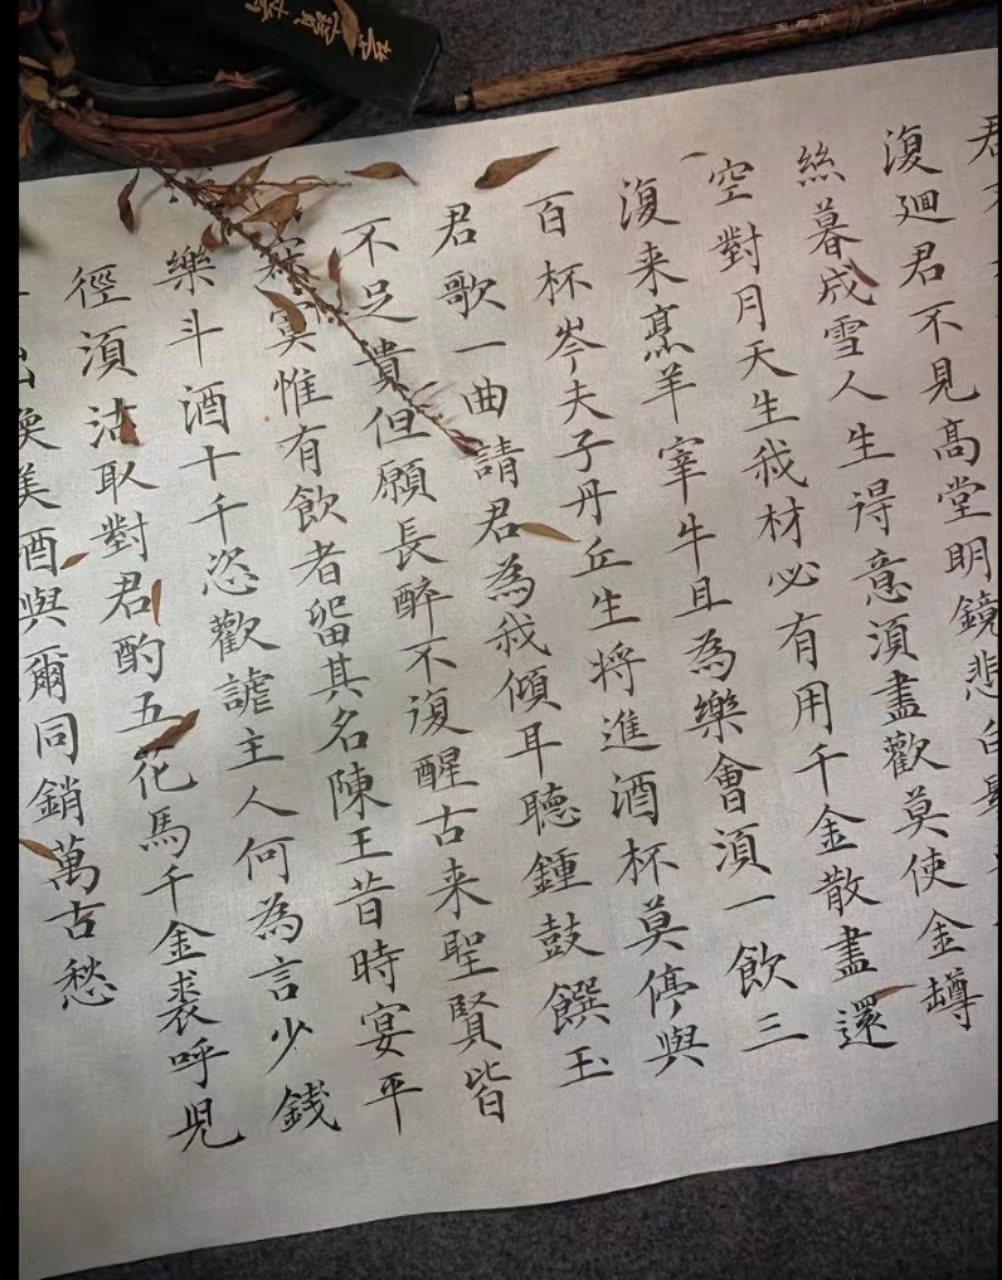 君不
復迴君不見高堂明鏡悲白髮
絲暮成雪人生得意須盡歡莫使金罇
空對月天生我材必有用千金散盡還
復来烹羊宰牛且為樂會須一飲三
百杯岑夫子丹丘生将進酒杯莫停與
君歌一曲請君為我傾耳聽鍾鼓饌玉
不足貴但願長醉不復醒古来聖賢皆
寂寞惟有飲者留其名陳王昔時宴平
樂斗酒十千恣歡謔主人何為言少錢
徑須沽取對君酌五花馬千金裘呼児
出換美酒與爾同銷萬古愁